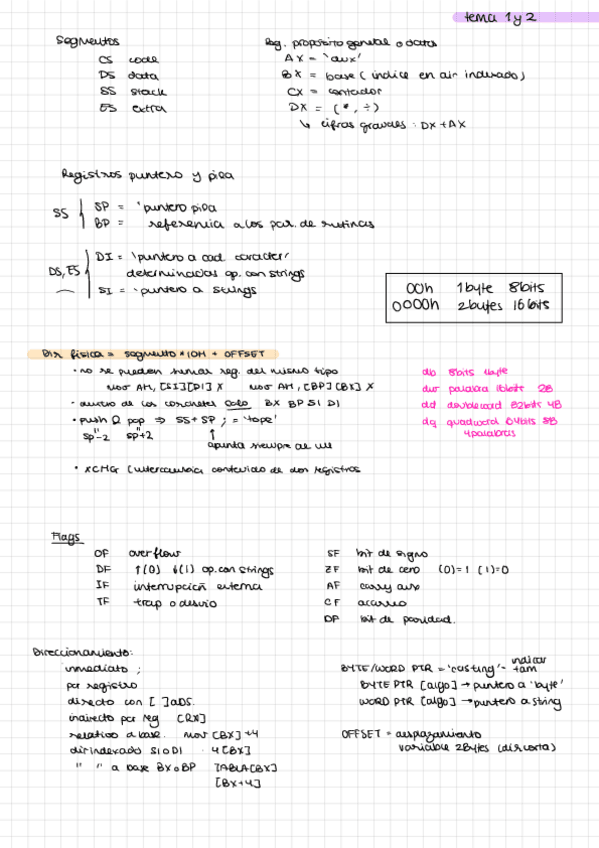 tema 1 y 2
Segmentos
CS code
DS data
SS stack
ES extra
Reg. propósito general o datos
AX = 'aux'
BX = base (índice en dir indexado)
CX = contador
DX = (*, ÷)
↳ cifras grandes : DX + AX
Registros puntero y pila
SS
SP = 'puntero pila
BP = referencia a los par. de rutinas
DS, ES
DI = 'puntero a cad. caracter'
determinadas op. con strings
SI = 'puntero a strings
00h 1 byte 8bits
0000h 2 bytes 16 bits
Dir física = segmento * 10H + OFFSET
• no se pueden sumar reg. del mismo tipo
mov AH, [SI][DI] X mov AH, [BP][BX] X
• dentro de los corchetes solo BX BP SI DI
• push & pop ⇒ SS + SP ; = 'tope'
sp"-2 sp"+2
apunta siempre al ult
• XCHG (intercambia contenido de dos registros
db 8bits 1byte
dw palabra 16bits 2B
dd doubleword 32bits 4B
dq quadword 64bits 8B
4palabras
Flags
OF overflow
DF ↑(0) ↓(1) op. con strings
IF interrupción externa
TF trap o desvío
SF bit de signo
ZF bit de cero (0)=1 (1)=0
AF carry aux
CF acarreo
DP bit de paridad.
Direccionamiento:
inmediato ;
por registro
directo con [ ] a DS.
indirecto por reg [RX]
relativo a base. mov [BX]+4
dir indexado SI o DI · 4[BX]
" " a base BX o BP TABLA[BX]
[BX+4]
BYTE/WORD PTR = 'casting' - indicar tam
BYTE PTR [algo] → puntero a 'byte'
WORD PTR [algo] → puntero a string
OFFSET = desplazamiento
variable 2Bytes (dir corta)